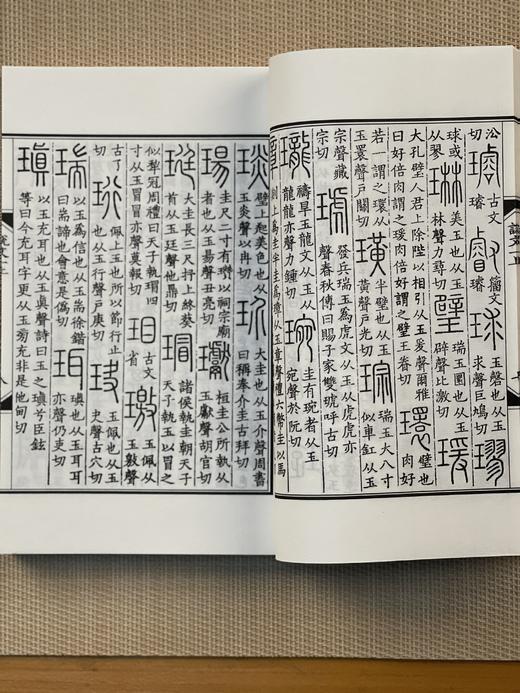 沿切 璿 古文璿 叡 籀文璿 球 玉磬也从玉求聲巨鳩切 璆
球或从翏 琳 美玉也从玉林聲力尋切 璧 瑞玉圜也从玉辟聲比激切 瑗
大孔璧人君上除陛以相引从玉爰聲爾雅曰好倍肉謂之瑗肉倍好謂之璧王眷切 環 璧也肉好
若一謂之環从玉睘聲戶關切 璜 半璧也从玉黃聲戶光切 琮 瑞玉大八寸似車釭从玉
宗聲藏宗切 琥 發兵瑞玉爲虎文从玉从虎虎亦聲春秋傳曰賜子家雙琥呼古切
瓏 禱旱玉龍文从玉从龍龍亦聲力鍾切 琬 圭有琬者从玉宛聲於阮切
璋 剡上爲圭半圭爲璋从玉章聲禮六幣圭以馬
琰 璧上起美色也从玉炎聲以冉切 玠 大圭也从玉介聲周書曰稱奉介圭古拜切
瑒 圭尺二寸有瓚以祠宗廟者也从玉昜聲丑亮切 瓛 桓圭公所執从玉獻聲胡官切
珽 大圭長三尺抒上終葵首从玉廷聲他鼎切 瑁 諸侯執圭朝天子天子執玉以冒之
似犂冠周禮曰天子執瑁四寸从玉冒冒亦聲莫報切 古文省 璬 玉佩从玉敫聲
古了切 珩 佩上玉也所以節行止也从玉行聲戶庚切 玦 玉佩也从玉夬聲古穴切
瑞 以玉爲信也从玉耑徐鍇曰耑諦也會意是僞切 珥 瑱也从玉耳耳亦聲仍吏切
瑱 以玉充耳也从玉眞聲詩曰玉之瑱兮臣鉉等曰今充耳字更从玉旁充非是他甸切